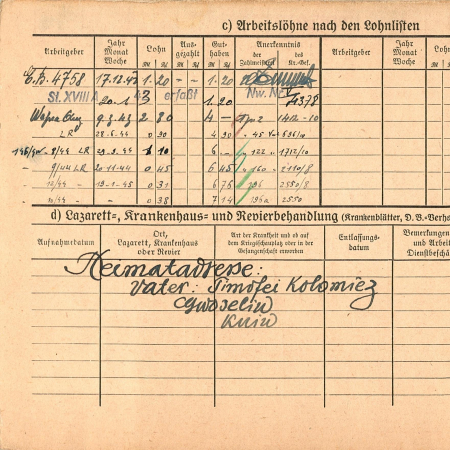 c) Arbeitslöhne nach den Lohnlisten
Arbeitgeber Jahr Monat Woche Lohn Ausgezahlt Guthaben Anerkenntnis des Zahlmeisters Kr.-Gef. Arbeitgeber Jahr Monat Woche Lohn
ℛℳ ₰ ℛℳ ₰ ℛℳ ₰
E.B. 4758 17.12.42 1.20 - - 1.20
St. XVIII A 20.1.43 erfaßt 1.20 Nw. Nr. 4378
9.3.43 2 80 4 -
LR 28.6.44 0 30 4 30 45
LR 6 - 122 1712/10
9/44 LR 20-11-44 0 45 6 45 160 2110/8
12/44 19-1-45 0 31 6 76 196 2550/8
0 38 7 14 196a 2550
d) Lazarett-, Krankenhaus- und Revierbehandlung (Krankenblätter, D.B.-Verfs
Aufnahmedatum Ort, Lazarett, Krankenhaus oder Revier Art der Krankheit und ob auf dem Kriegsschauplatz oder in der Gefangenschaft erworben Entlassungsdatum Bemerkungen und Arbeit Dienstbeschä
Heimatadresse:
Vater: Timofei Kolomiez
Gwoselin
Kuiw